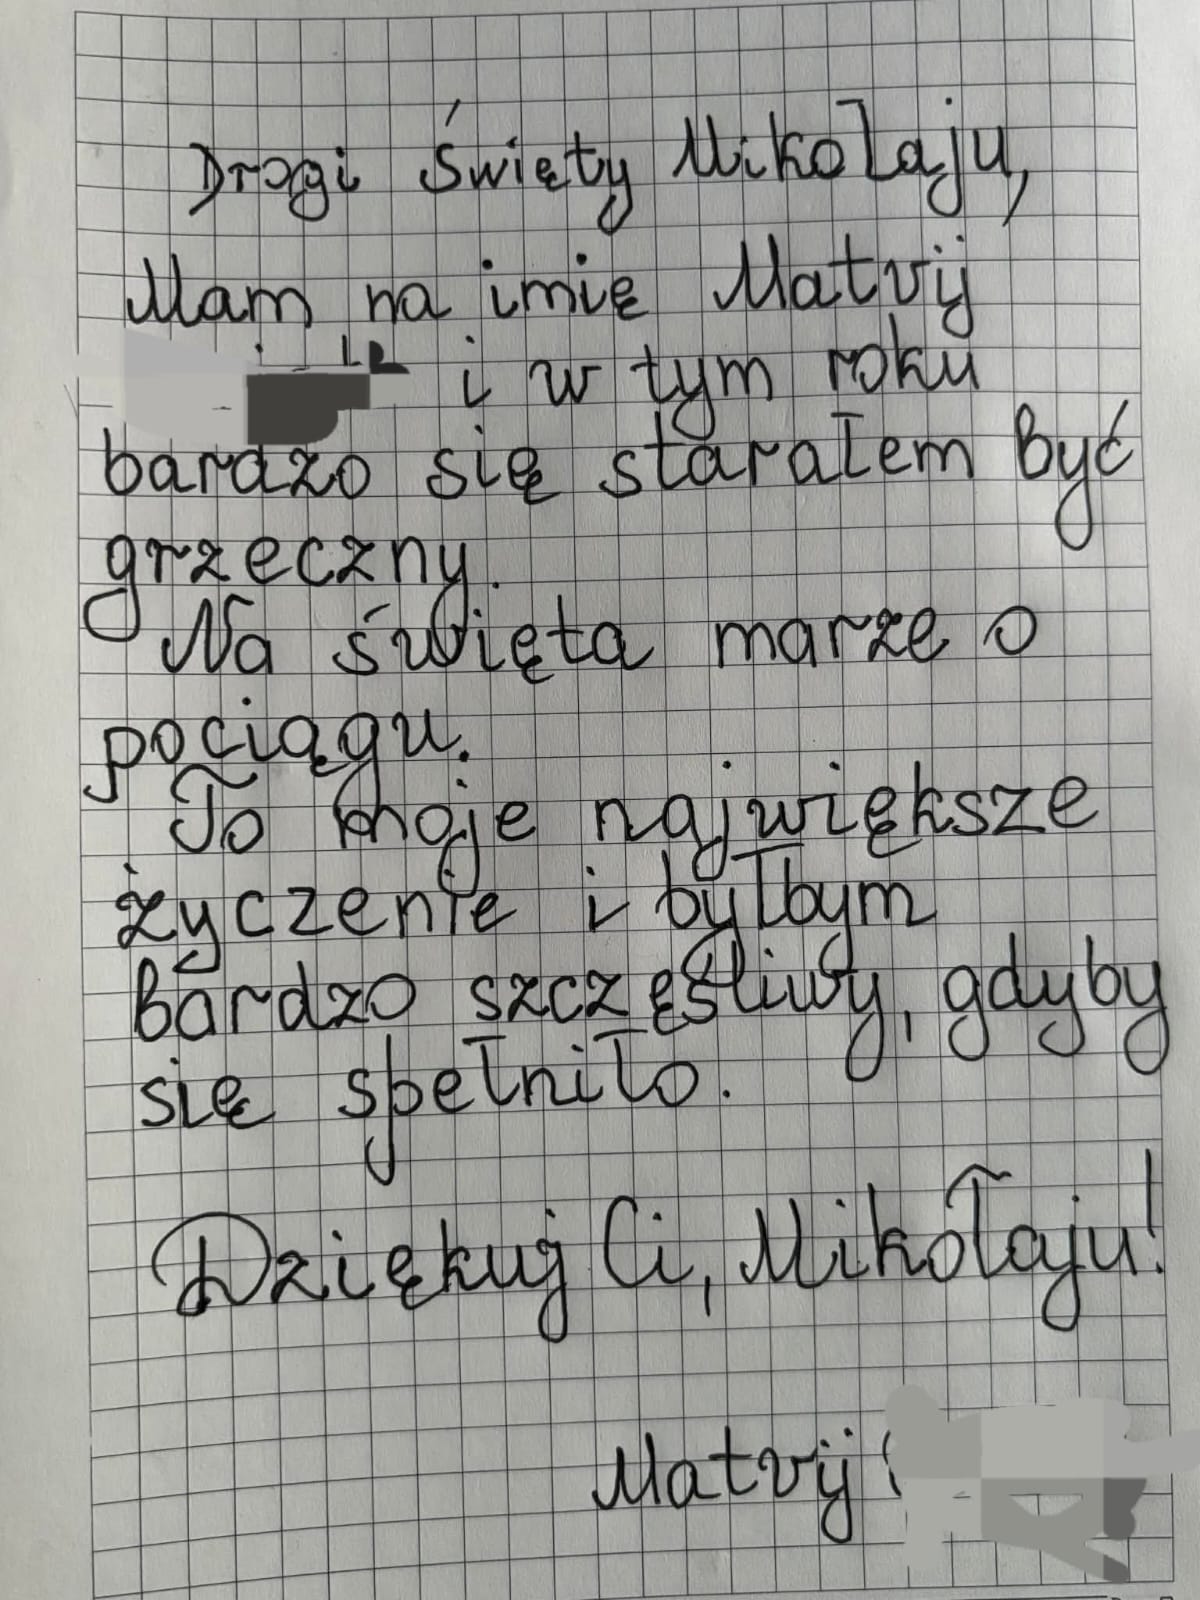 Drogi Święty Mikołaju,
Mam na imię Matvij
i w tym roku
bardzo się starałem być
grzeczny.
Na święta marze o
pociągu.
To moje największe
życzenie i byłbym
bardzo szczęśliwy, gdyby
się spełniło.
Dziękuj Ci, Mikołaju!
Matvij